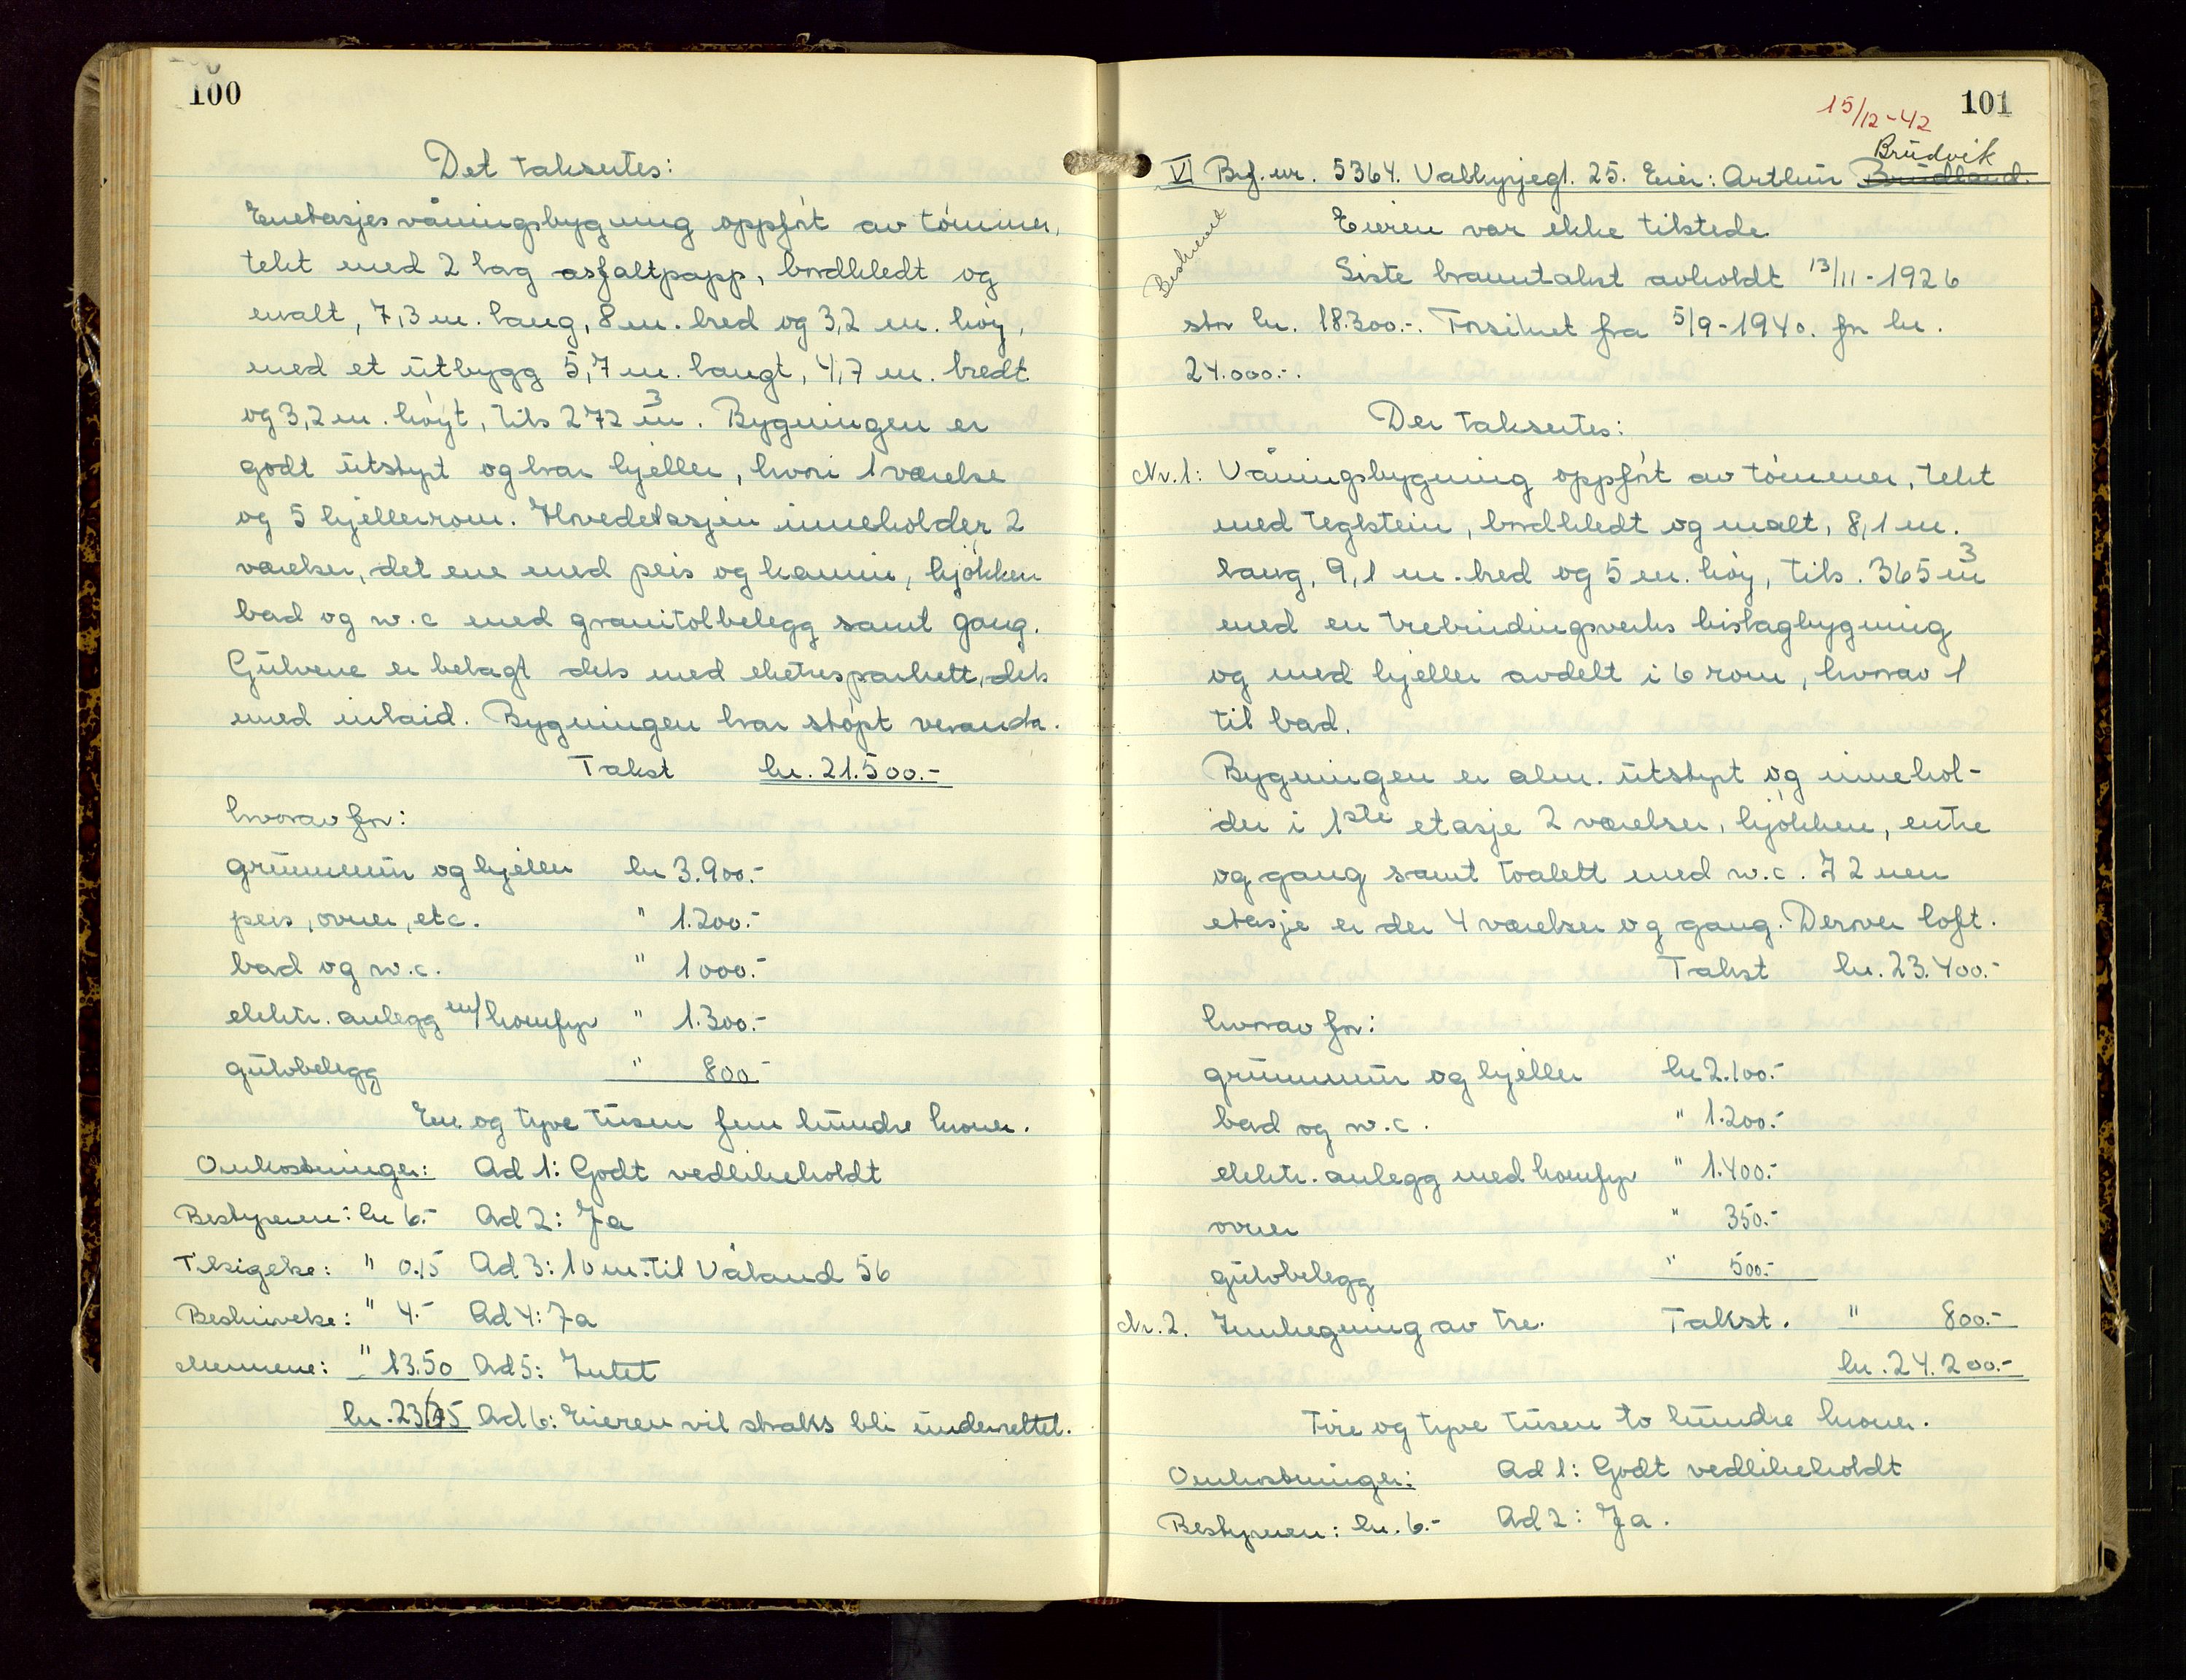 100
Det takseres:
Enetasjes våningsbygning oppført av tømmer,
tekt med 2 lag asfaltpapp, bordkledt og
malt, 7,3 m. lang, 8 m. bred og 3,2 m. høy,
med et utbygg 5,7 m. langt, 4,7 m. bredt
og 3,2 m. høyt, tils 272 m³. Bygningen er
godt utstyrt og har kjeller, hvori 1 værelse
og 5 kjellerrom. Hovedetasjen inneholder 2
værelser, det ene med peis og kamin, kjøkken
bad og w.c med granitolbelegg samt gang.
Gulvene er belagt dels med eketresparkett, dels
med inlaid. Bygningen har støpt veranda.
Takst kr. 21.500.-
hvorav for:
grunnmur og kjeller kr 3.900.-
peis, ovner, etc. " 1.200.-
bad og w.c. " 1000.-
elektr. anlegg m/komfyr " 1.300.-
gulvbelegg " 800.-
En og tyve tusen fem hundre kroner.
Omkostninger: Ad 1: Godt vedlikeholdt
Bestyreren: kr 6.- Ad 2: Ja
Tilsigelse: " 0.15 Ad 3: 10 m. til Våland 56
Beskrivelse: " 4.- Ad 4: Ja
Mennene: " 13.50 Ad 5: Intet
kr. 23.65 Ad 6: Eieren vil straks bli underrettet.
101
15/12-42
Brudvik
VI Brf. nr. 5364. Valkyrjegt. 25. Eier: Arthur Brudland.
Beskrevet
Eieren var ikke tilstede
Siste branntakst avholdt 13/11-1926
stor kr. 18.300.-. Forsikret fra 5/9-1940. for kr.
24.000.-.
Der takseres:
Nr. 1: Våningsbygning oppført av tømmer, tekt
med teglstein, bordkledt og malt, 8,1 m.
lang, 9,1 m. bred og 5 m. høy, tils. 365 m³
med en trebindingsverks bislagbygning
og med kjeller avdelt i 6 rom, hvorav 1
til bad.
Bygningen er alm. utstyrt og innehol-
der i 1ste etasje 2 værelser, kjøkken, entre
og gang samt toalett med w.c. I 2 nen
etasje er der 4 værelser og gang. Derover loft.
Takst kr. 23.400.-
hvorav for:
grunnmur og kjeller kr 2.100.-
bad og w.c. " 1.200.-
elektr. anlegg med komfyr " 1.400.-
ovner " 350.-
gulvbelegg " 500.-
Nr. 2. Innhegning av tre. Takst. " 800.-
kr. 24.200.-
Fire og tyve tusen to hundre kroner.
Omkostninger: Ad 1: Godt vedlikeholdt
Bestyreren: kr. 6.- Ad 2: Ja.